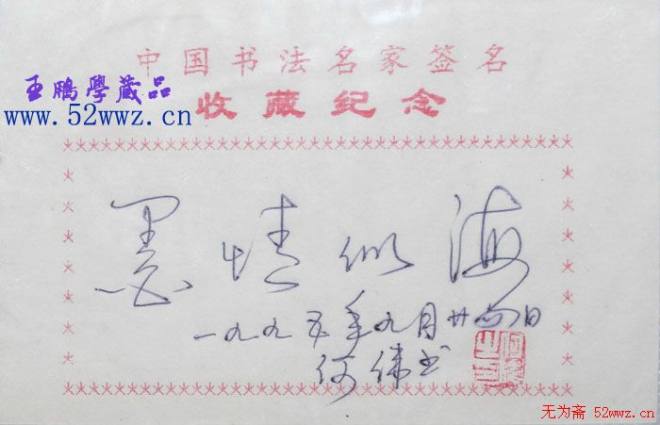 中国书法名家签名
王鹏學藏品
收藏纪念
www.52wwz.cn
墨情似海
一九九五年九月廿四日
何伟书
无为斋 52wwz.cn